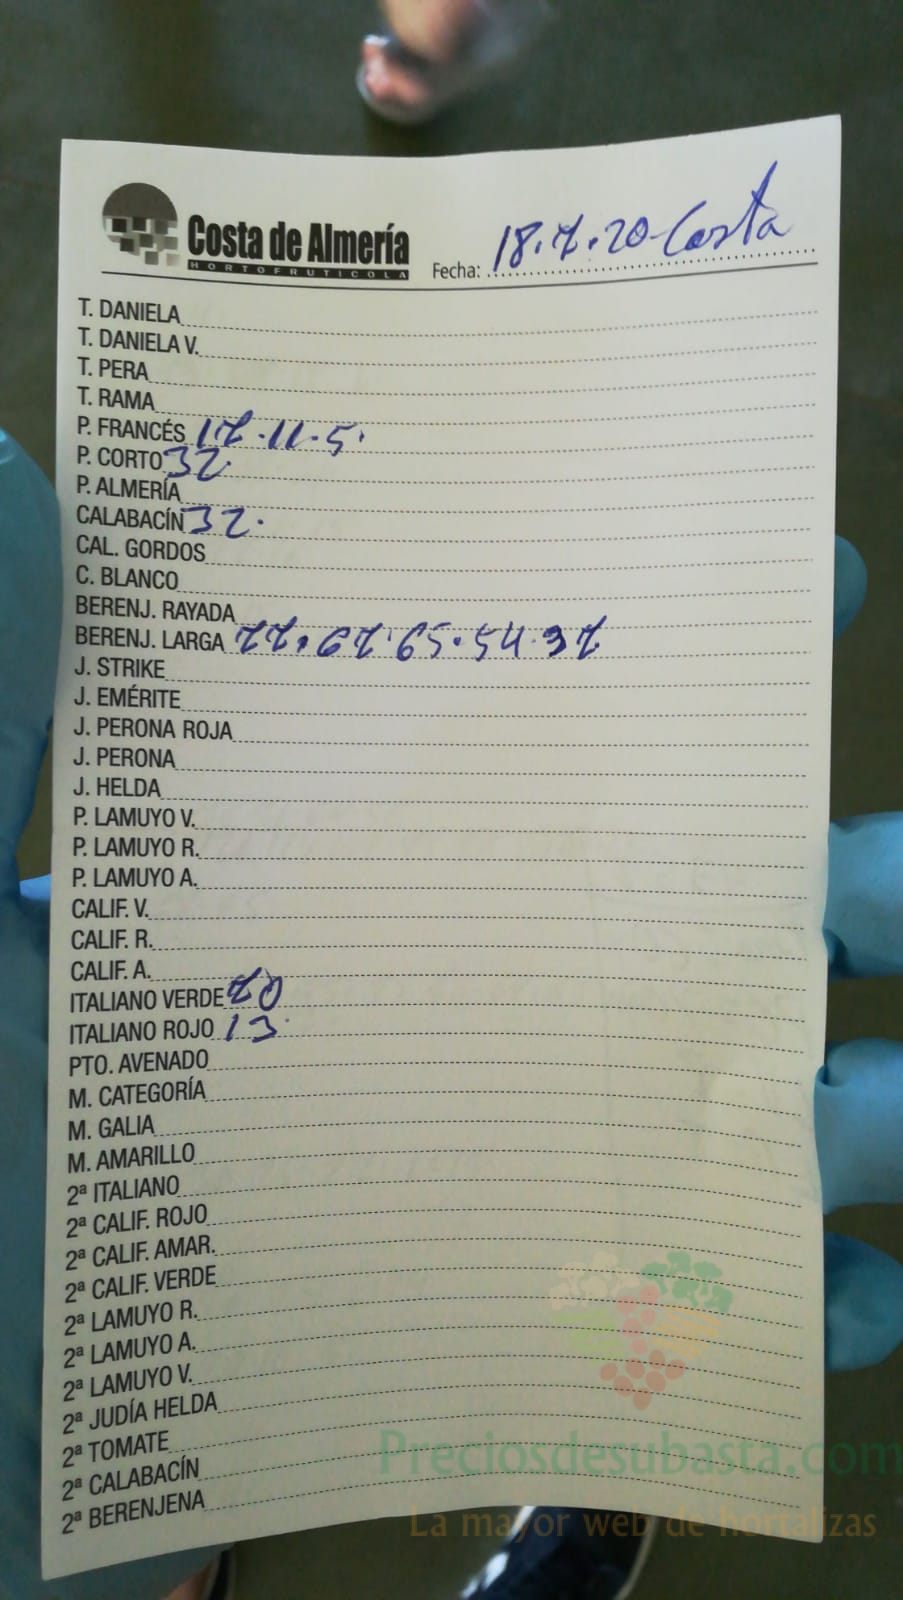 Costa de Almería
HORTOFRUTICOLA
Fecha: 18.7.20 Costa
T. DANIELA
T. DANIELA V.
T. PERA
T. RAMA
P. FRANCÉS 17.11.5.
P. CORTO 32.
P. ALMERÍA
CALABACÍN 32.
CAL. GORDOS
C. BLANCO
BERENJ. RAYADA
BERENJ. LARGA 77.67.65.54.37
J. STRIKE
J. EMÉRITE
J. PERONA ROJA
J. PERONA
J. HELDA
P. LAMUYO V.
P. LAMUYO R.
P. LAMUYO A.
CALIF. V.
CALIF. R.
CALIF. A.
ITALIANO VERDE 70
ITALIANO ROJO 13
PTO. AVENADO
M. CATEGORÍA
M. GALIA
M. AMARILLO
2ª ITALIANO
2ª CALIF. ROJO
2ª CALIF. AMAR.
2ª CALIF. VERDE
2ª LAMUYO R.
2ª LAMUYO A.
2ª LAMUYO V.
2ª JUDÍA HELDA
2ª TOMATE
2ª CALABACÍN
2ª BERENJENA
Preciosdesubasta.com
La mayor web de hortalizas